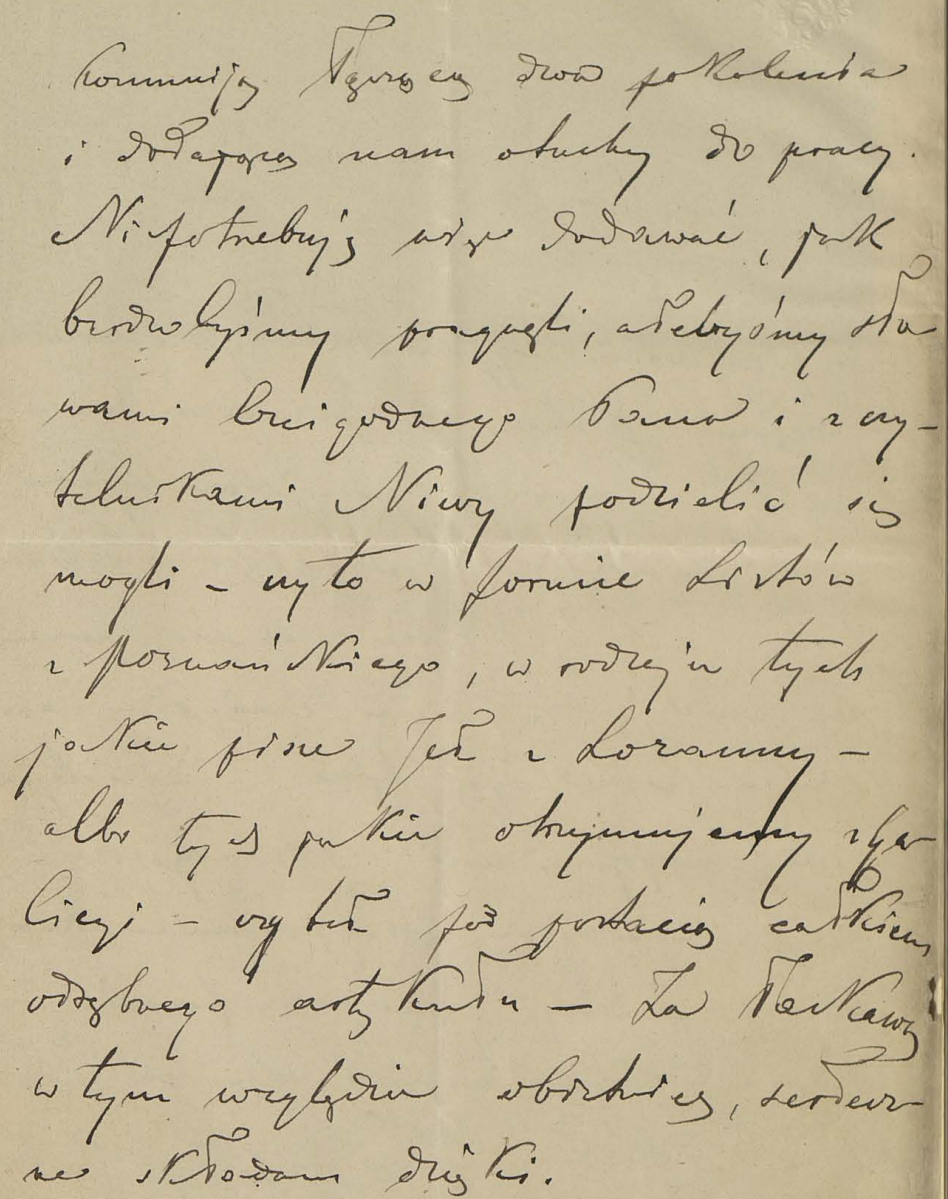 komuniją łączącą dwa pokolenia
i dodającą nam otuchy do pracy.
Niepotrzebuję więc dodawać, jak
bardzo byśmy pragnęli, ażebyśmy sło
wami czcigodnego Pana i z czy-
telnikami Niwy podzielić się
mogli – czy to w formie Listów
z Poznańskiego, w rodzaju tych
jakie pisze Jeż z Lozanny –
albo tych jakie otrzymujemy z Ga-
licyi – czy też pod postacią całkiem
odrębnego artykułu – Za łaskawą
w tym względzie obietnicę, serdecz-
ne składam dzięki.